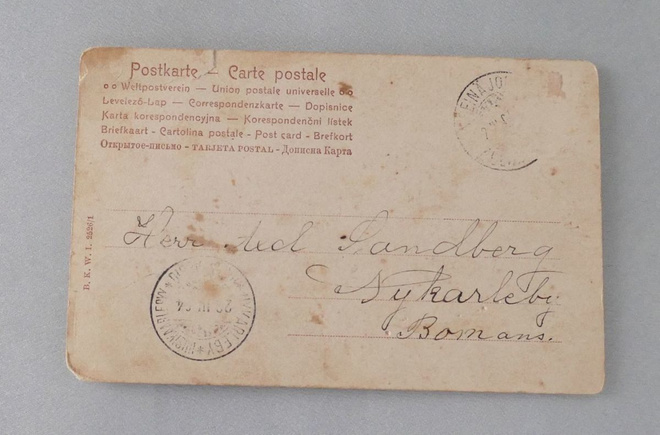 Postkarte – Carte postale
Weltpostverein — Union postale universelle
Levelező-Lap — Correspondenzkarte — Dopisnice
Karta korespondencyjna — Korespondenční lístek
Briefkaart - Cartolina postale - Post card - Brefkort
Открытое-письмо - TARJETA POSTAL - Дописна Карта
EINÄJO
B. K. W. I. 2526/1
Herr Sandberg
Nykarleby
Bomans.
NYKARLEBY